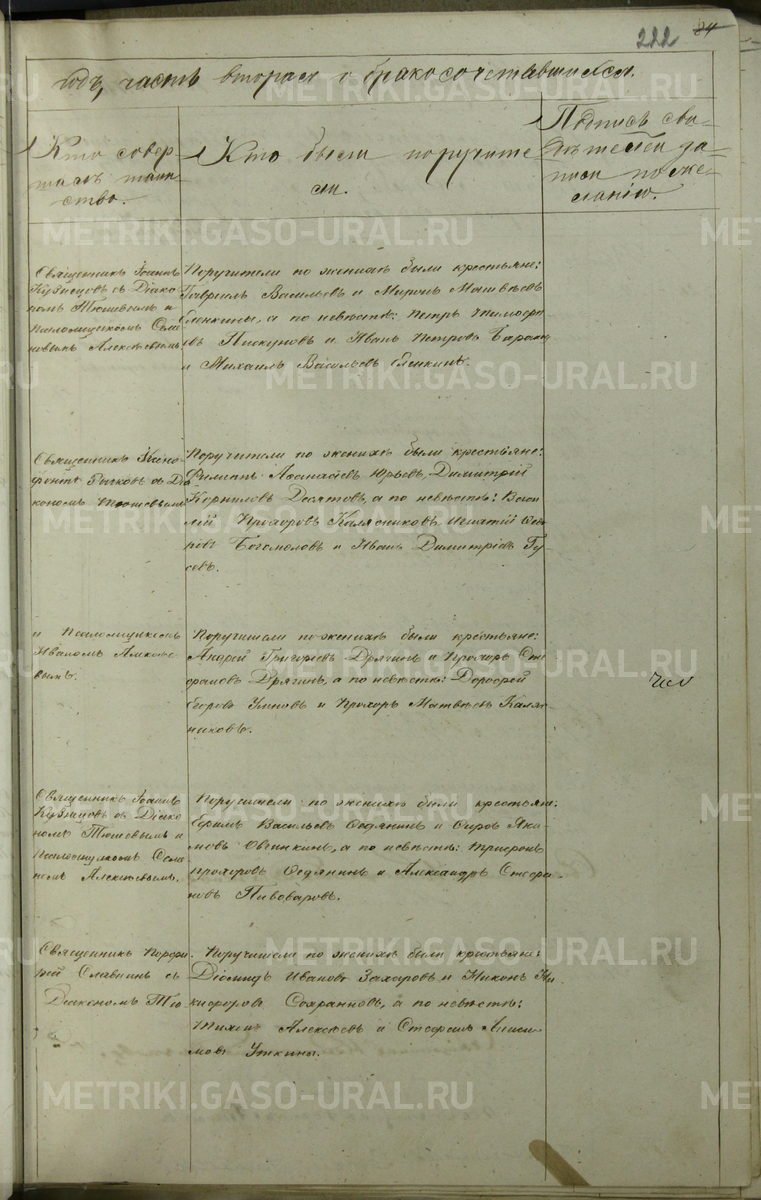 222 84
годъ, часть вторая о бракосочетавшихся.
Кто совер-
шалъ таин-
ство.
Кто были поручите-
ли.
Подпись сви-
дѣтелей за-
писи по же-
ланію.
Священникъ Іоаннъ
Кузнецовъ съ Діако-
номъ Тюшевымъ и
Псаломщикомъ
Алексѣевымъ
Поручители по женихѣ были крестьяне:
Гавріилъ Васильевъ и Миронъ Матвѣевъ
Еленкины, а по невѣстѣ: Петръ
Пискуновъ и Иванъ Петровъ
и Михаилъ Васильевъ Еленкинъ.
Священникъ Ксено-
фонтъ съ Діа-
кономъ Тюшевымъ
Поручители по женихѣ были крестьяне:
Филиппъ Юрьевъ, Димитрій
Корниловъ Десятовъ, а по невѣстѣ: Васи-
лій Прохоровъ Калясниковъ, Игнатій
Богомоловъ и Иванъ Димитріевъ Гу-
севъ.
и Псаломщикомъ
Иваномъ Алексѣе-
вымъ.
Поручители по женихѣ были крестьяне:
Андрей Григорьевъ Дрягинъ и Прохоръ Сте-
фановъ Дрягинъ, а по невѣстѣ: Дорофей
Егоровъ Умновъ и Прохоръ Матвѣевъ Каляс-
никовъ.
Священникъ Іоаннъ
Кузнецовъ съ Діако-
номъ Тюшевымъ и
Псаломщикомъ
Алексѣевымъ.
Поручители по женихѣ были крестьяне:
Ефимъ Васильевъ и Яки-
мовъ Овчинкинъ, а по невѣстѣ: Трифонъ
Прохоровъ и Александръ Стефа-
новъ Пивоваровъ.
Священникъ Порфи-
рій Славнинъ съ
Діакономъ Тю-
Поручители по женихѣ были крестьяне:
Діомидъ Ивановъ Захаровъ и Никонъ Ни-
кифоровъ Сохранновъ, а по невѣстѣ:
Тихонъ Алексѣевъ и Стефанъ Аниси-
мовъ Уткины.
METRIKI.GASO-URAL.RU